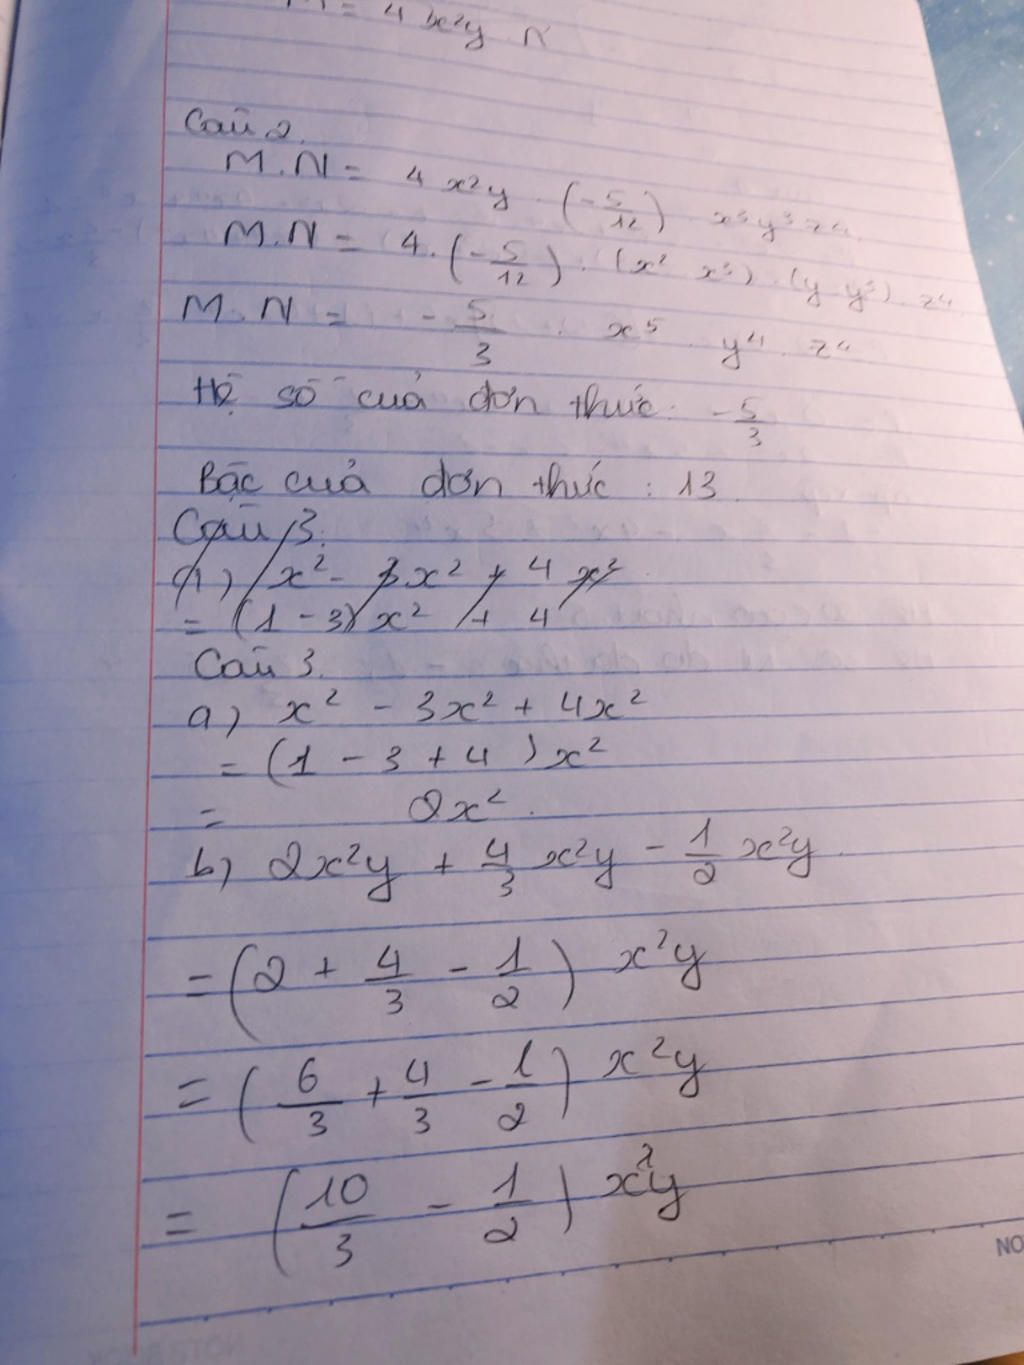 = 4 x²y
Câu 2.
M.N = 4 x²y . (-5/12) . x³y³z⁴
M.N = 4.(-5/12) . (x² x³) . (y y³) . z⁴
M.N = -5/3 . x⁵ . y⁴ . z⁴
Hệ số của đơn thức: -5/3
Bậc của đơn thức : 13.
Câu 3:
a) x² - 3x² + 4x²
= (1 - 3) x² + 4
Câu 3.
a) x² - 3x² + 4x²
= (1 - 3 + 4 ) x²
= 2x².
b) 2x²y + 4/3 x²y - 1/2 x²y.
= (2 + 4/3 - 1/2) x²y
= (6/3 + 4/3 - 1/2) x²y
= (10/3 - 1/2) x²y
NO